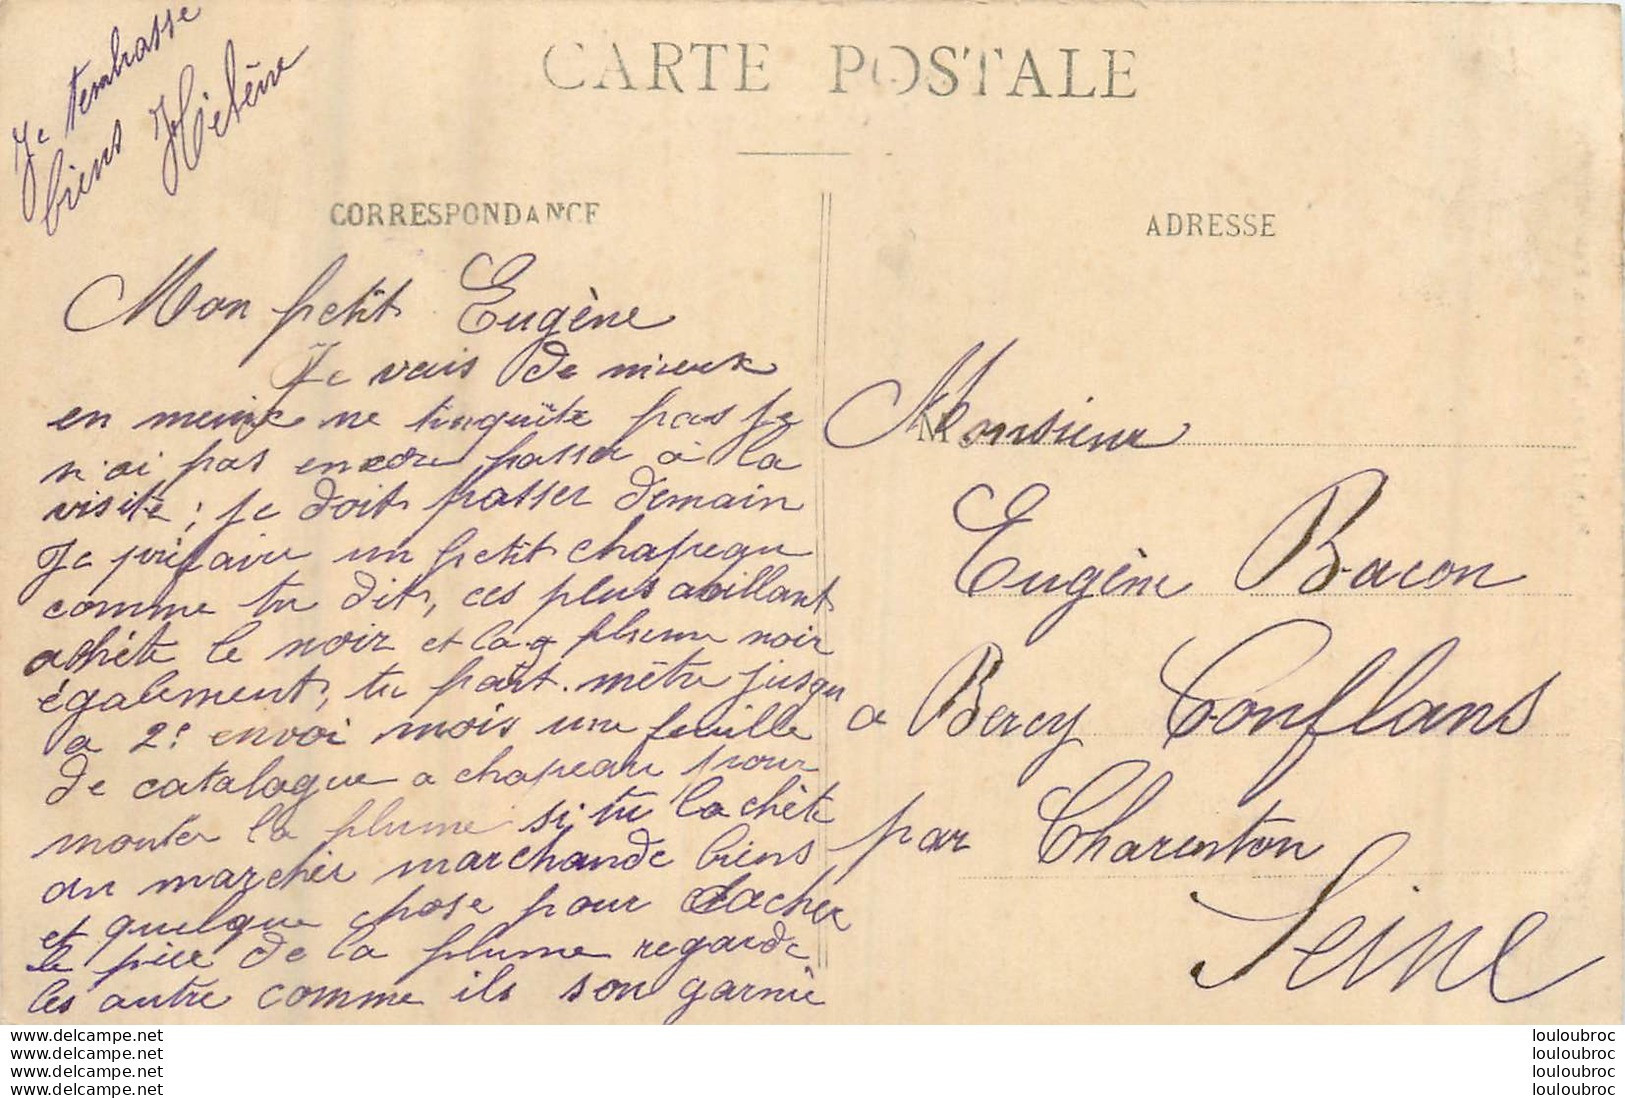 Je tembrasse
biens Hélène
CARTE POSTALE
CORRESPONDANCE
ADRESSE
Mon petit Eugène
Je vais de mieux
en meiux ne tinquiète pas je
n'ai pas encore passer à la
visite; je doit passer demain
Je préfaire un petit chapeau
comme tu dit, ces plus abillant
achète le noir et la plume noir
également, tu part. mètre jusqu
a 2e envoi mois une feuille
de catalogue a chapeau pour
monter la plume si tu lachète
au marcher marchande biens
et quelque chose pour cacher
le pice de la plume regarde
les autre comme ils son garnie
Monsieur
Eugène Bacon
a Bercy Conflans
par Charenton
Seine
www.delcampe.net
www.delcampe.net
www.delcampe.net
www.delcampe.net
louloubroc
louloubroc
louloubroc
louloubroc